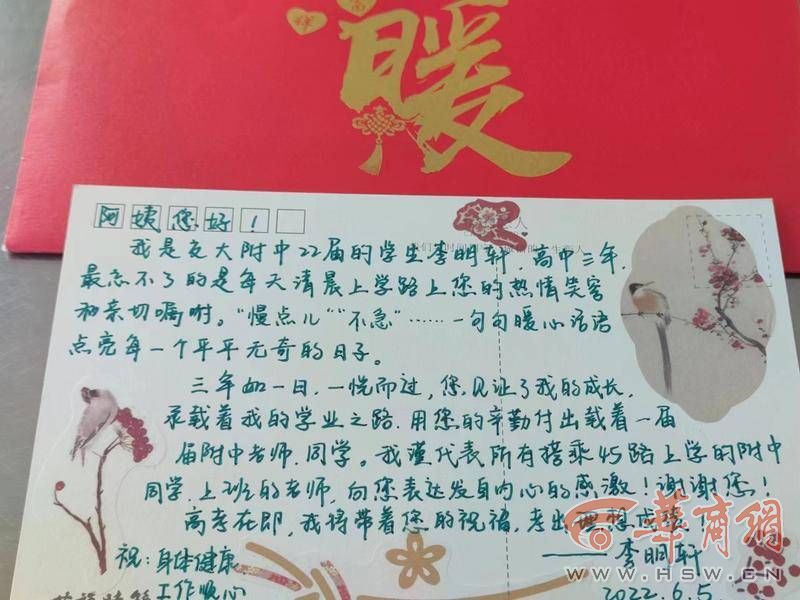 富
祥
暖
阿姨您好！
我是交大附中22届的学生李明轩，高中三年，
最忘不了的是每天清晨上学路上您的热情笑容
和亲切嘱咐。“慢点儿”“不急”……一句句暖心话语
点亮每一个平平无奇的日子。
三年如一日，一恍而过，您见证了我的成长，
承载着我的学业之路，用您的辛勤付出载着一届
届附中老师、同学。我谨代表所有搭乘45路上学的附中
同学、上班的老师，向您表达发自内心的感激！谢谢您！
高考在即，我将带着您的祝福，考出理想成绩。
——李明轩
祝：身体健康
工作顺心
2022.6.5
华商网
WWW.HSW.CN